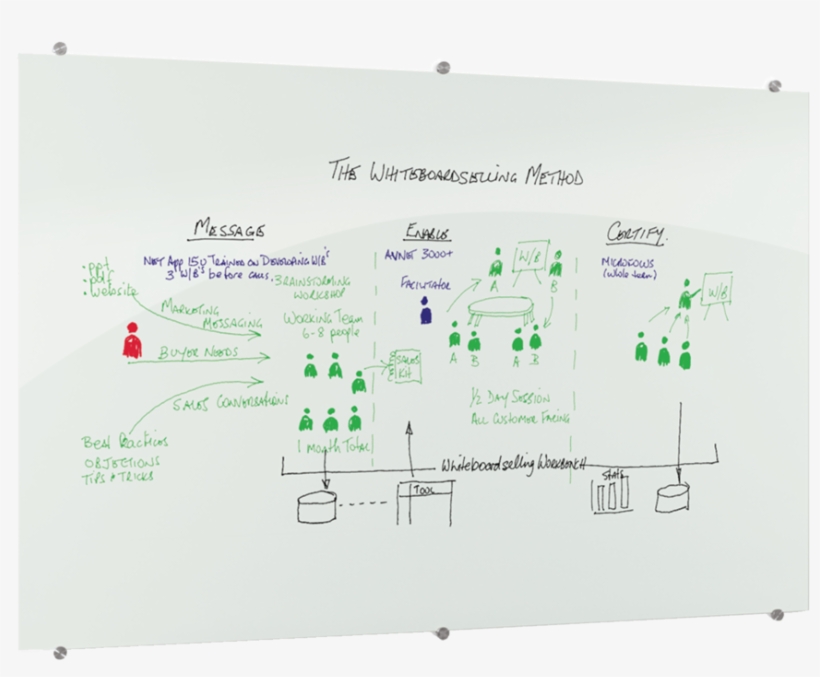 THE WHITEBOARDSELLING METHOD
MESSAGE
NET App 150 TRAINED ON DEVELOPING W/B's
3 W/B's before
:ppt
:pdf
:website
MARKETING
MESSAGING
BUYER NEEDS
SALES CONVERSATIONS
Best Practices
OBJECTIONS
TIPS & TRICKS
BRAINSTORMING
WORKSHOP
WORKING TEAM
6-8 people
1 Month Total
SALES
KIT
ENABLE
3000+
FACILITATOR
W/B
A
B
A B A B
1/2 DAY SESSION
ALL CUSTOMER FACING
CERTIFY
MICROFOCUS
(whole team)
W/B
Whiteboardselling WORKBENCH
TOOL
Stats